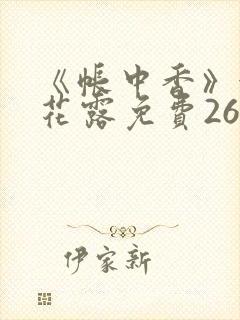 《帐中香》
花露免費26
伊家新